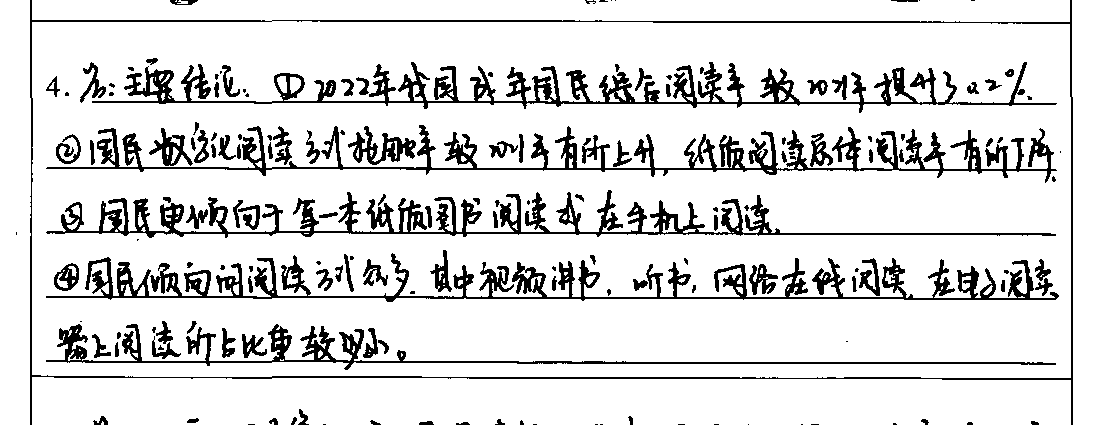 4. 答:主要结论:①2022年我国成年国民综合阅读率较2021年提升了0.2%.
②国民数字化阅读方式接触率较2021年有所上升,纸质阅读总体阅读率有所下降.
③国民更倾向于拿一本纸质图书阅读或在手机上阅读.
④国民倾向的阅读方式众多.其中视频讲书,听书,网络在线阅读,在电子阅读
器上阅读所占比重较小。